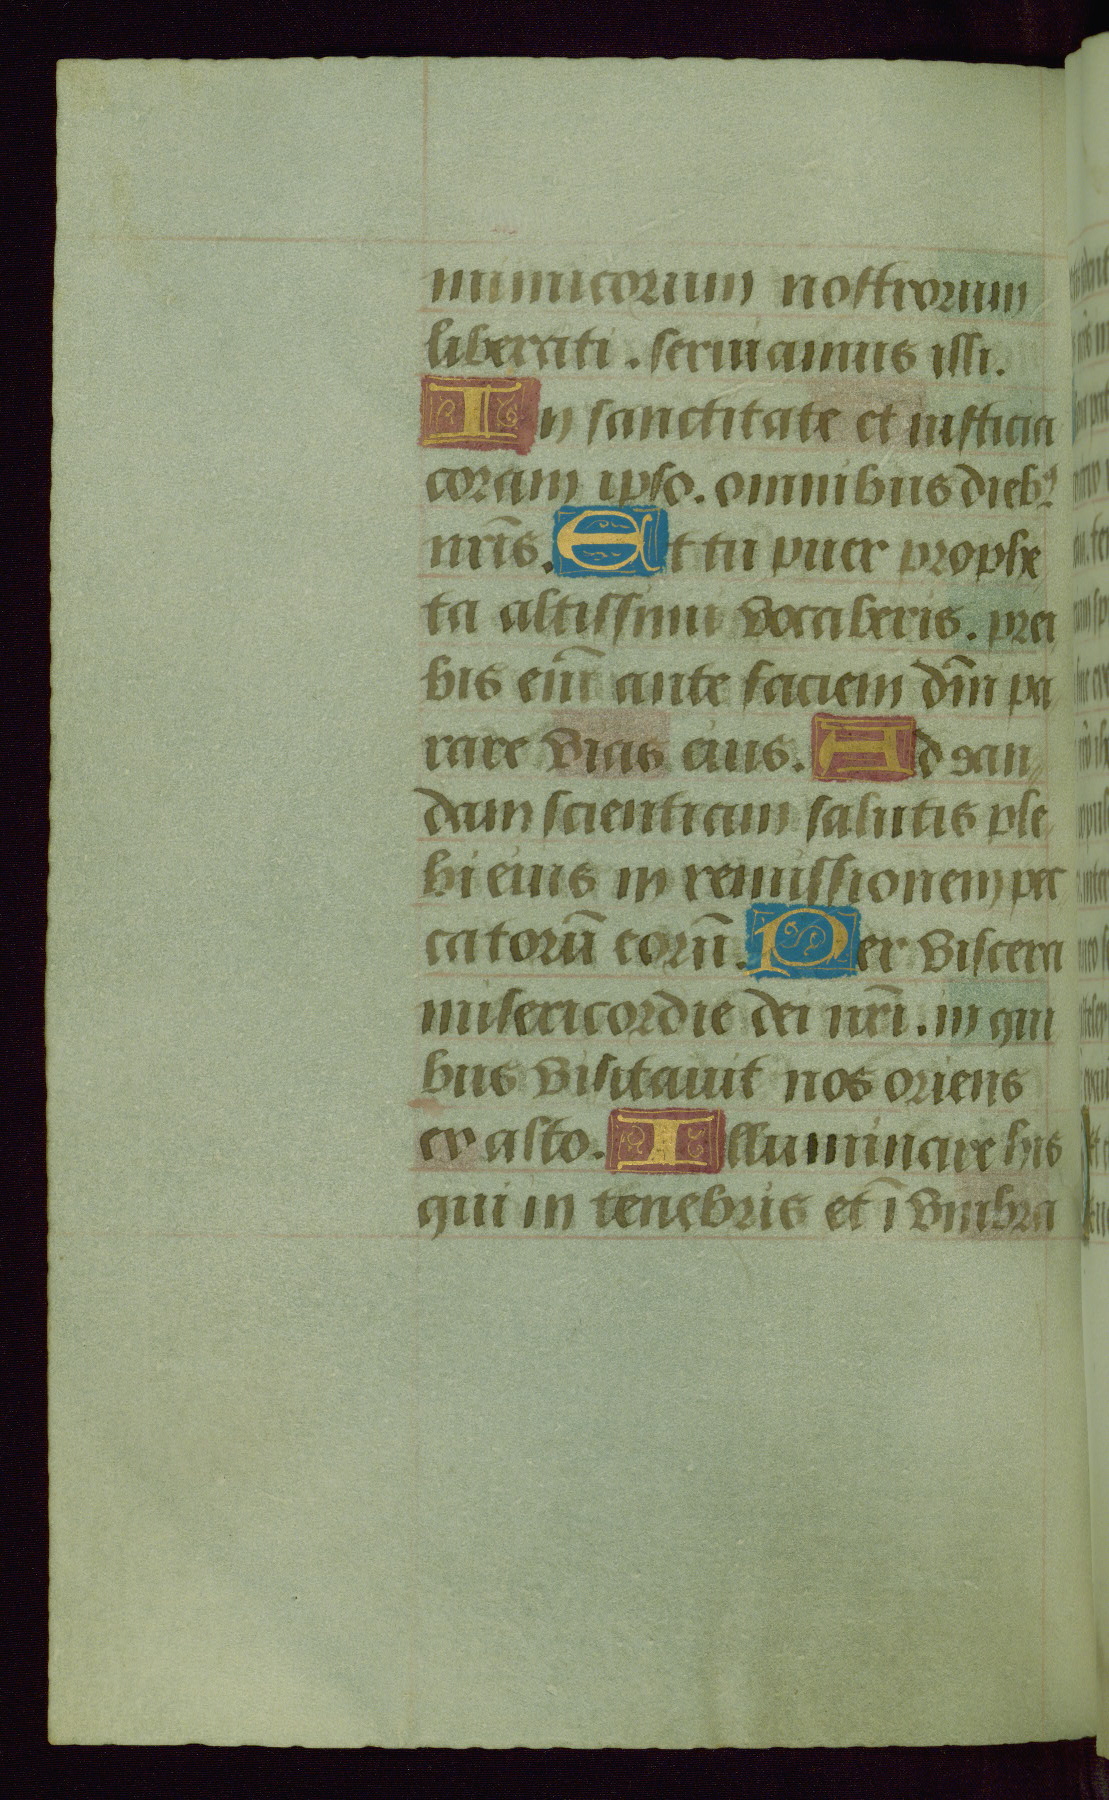 inimicorum nostrorum
liberati. seruiamus illi.
In sanctitate et iusticia
coram ipso. omnibus dieb⁹
nr̄is. Et tu puer prophe
ta altissimi vocaberis. prei
bis eni̅ ante faciem dn̄i pa
rare vias eius. Ad dan
dam scientiam salutis ple
bi eius in remissionem pec
catorū eorū. Per viscera
misericordie dei nr̄i. in qui
bus visitauit nos oriens
ex alto. Illuminare his
qui in tenebris et ī vmbra